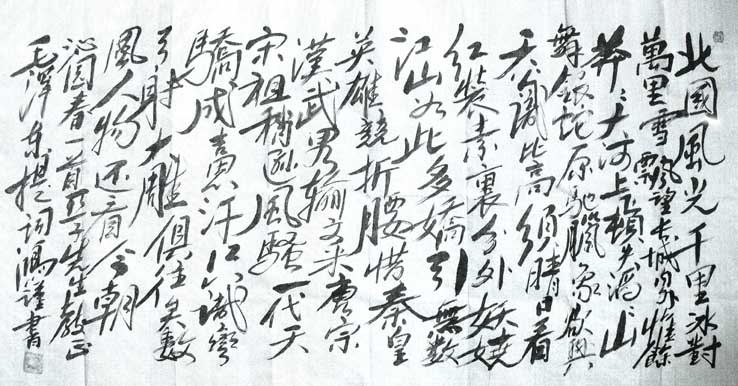 北國風光千里冰封
萬里雪飄望長城內外惟餘
莽〻大河上下頓失滔〻山
舞銀蛇原馳臘象欲與
天公試比高須晴日看
紅裝素裹分外妖嬈
江山如此多嬌引無數
英雄競折腰惜秦皇
漢武略輸文采唐宗
宋祖稍遜風騷一代天
驕成吉思汗只識彎
弓射大雕俱往矣數
風人物还看今朝
沁园春一首亞子先生教正
毛澤东提词鴻謹書